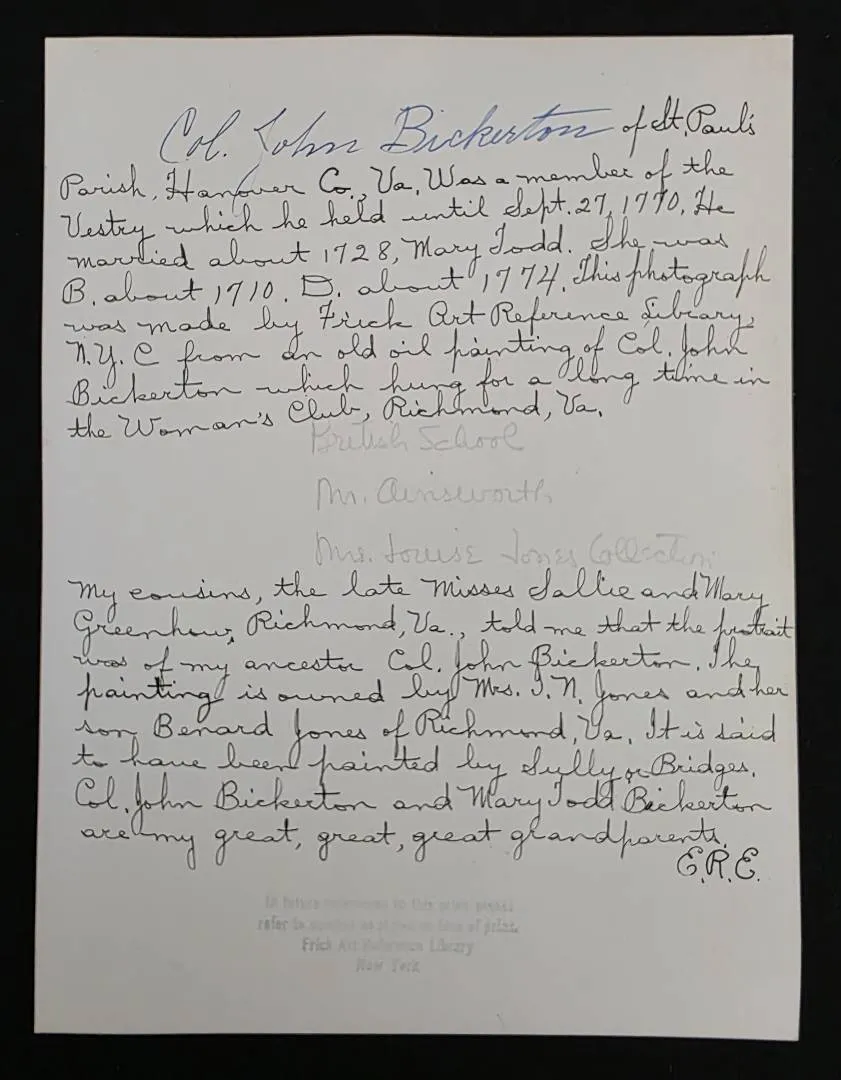 Col. John Bickerton of St. Paul's
Parish, Hanover Co., Va. Was a member of the
Vestry which he held until Sept. 27, 1770. He
married about 1728, Mary Todd. She was
B. about 1710. D. about 1774. This photograph
was made by Frick Art Reference Library,
N.Y.C from an old oil painting of Col. John
Bickerton which hung for a long time in
the Woman's Club, Richmond, Va.
British School
Mr. Ainsworth
Mrs. Louise Jones Collection
My cousins, the late Misses Sallie and Mary
Greenhow, Richmond, Va., told me that the protrait
was of my ancestor Col. John Bickerton. The
painting is owned by Mrs. I. N. Jones and her
son Benard Jones of Richmond, Va. It is said
to have been painted by Sully or Bridges.
Col. John Bickerton and Mary Todd Bickerton
are my great, great, great grandparents.
E.R.E.
In future references to this print please
refer to number as given on face of print.
Frick Art Reference Library
New York